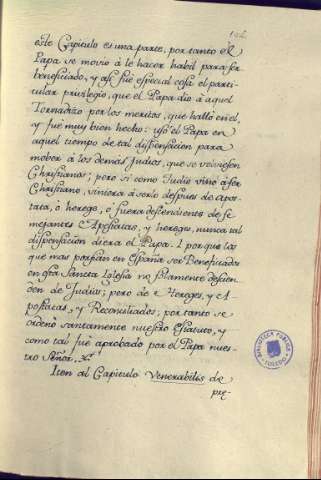 este Capitulo es una parte; por tanto el
Papa se movio à le hacer habil para ser
beneficiado, y assi fuè especial cosa el parti-
cular privilegio, que el Papa dio à aquel
Tornadizo por los meritos, que hallò en el,
y fuè muy bien hecho: usò el Papa en
aquel tiempo de tal dispensacion para
mober à los demas Judios, que se volviesen
Christianos; pero si como Judio vino à ser
Christiano, viniera à serlo despues de apos-
tata, ò herege, ò fuera descendiente de se-
mejantes Apostatas, y hereges, nunca tal
dispensacion diera el Papa. I porque los
que mas porfian en España ser Beneficiados
en esta Sancta Iglesia no solamente descien-
den de Judios; pero de Hereges, y A-
postatas, y Reconciliados; por tanto se
ordenò santamente nuestro Estatuto, y
como tal fuè aprobado por el Papa nues-
tro Señor, &c.
Iten al Capitulo Venerabilis de
pre-
BIBLIOTECA PUBLICA
TOLEDO